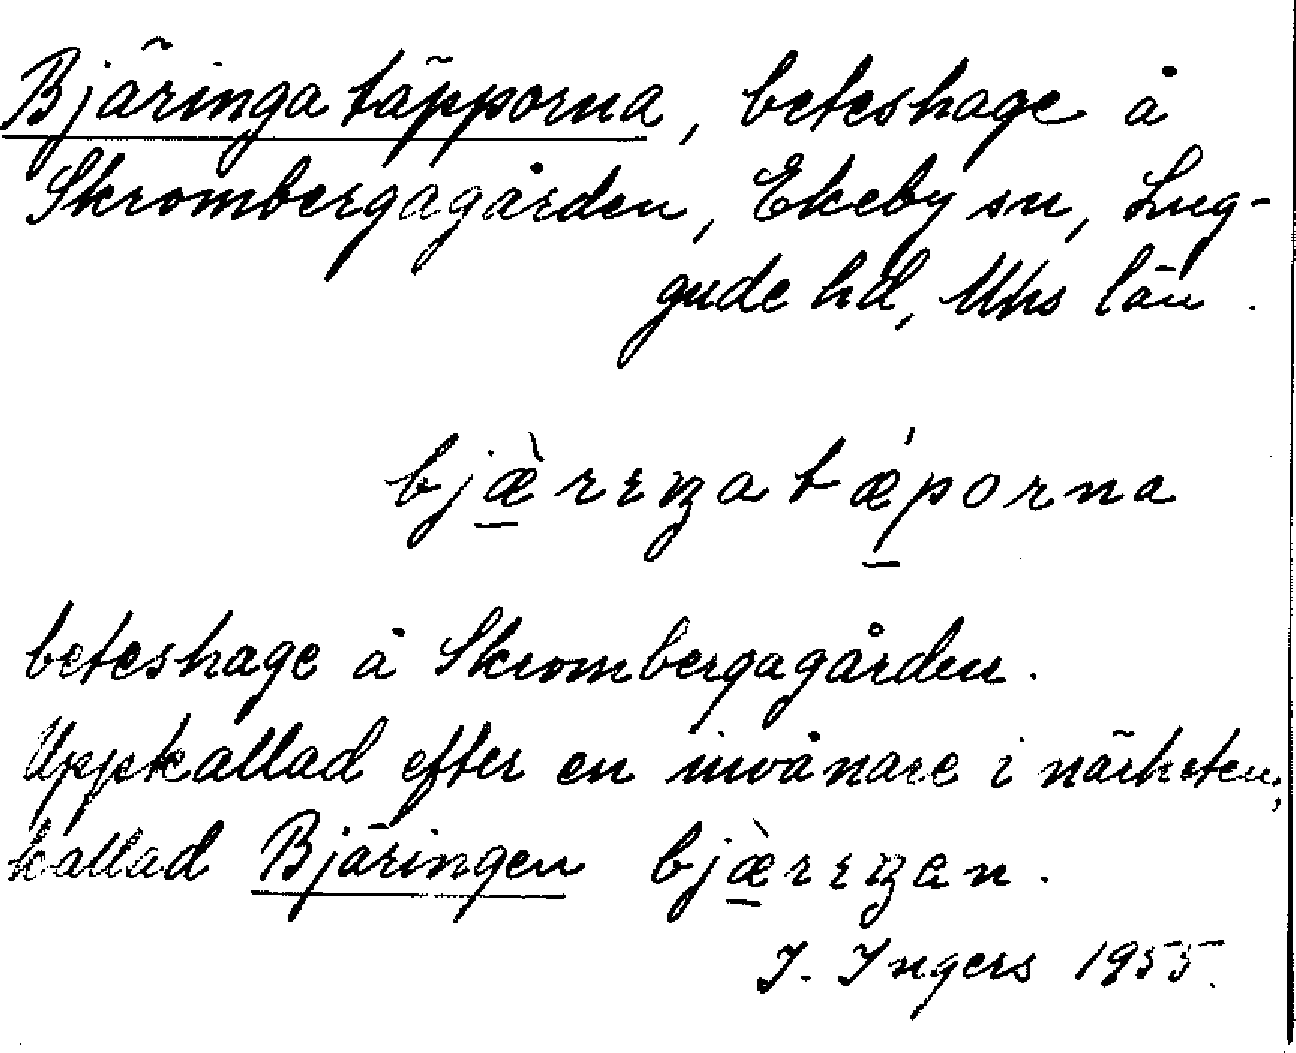 Bjäringatäpporna, beteshage å
Skrombergagården, Ekeby sn, Lug-
gude hd, Mhs län.
bjæ̀rɪŋatǽporna
beteshage å Skrombergagården.
Uppkallad efter en invånare i närheten,
kallad Bjäringen bjæ̀rɪŋen.
I. Ingers 1955.